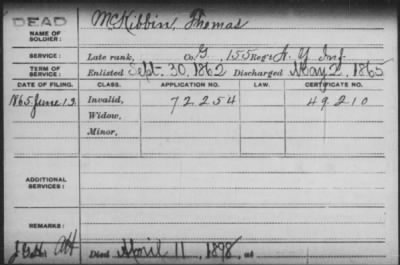 DEAD
NAME OF SOLDIER: McKibbin, Thomas
SERVICE: Late rank, Co. G, 155 Reg't N.Y. Inf.
TERM OF SERVICE: Enlisted Sept. 30, 1862 Discharged May 2, 1865
DATE OF FILING. CLASS. APPLICATION NO. LAW. CERTIFICATE NO.
1865 June 12 Invalid, 72254 49210
Widow,
Minor,
ADDITIONAL SERVICES:
REMARKS:
Died April 11, 1898, at